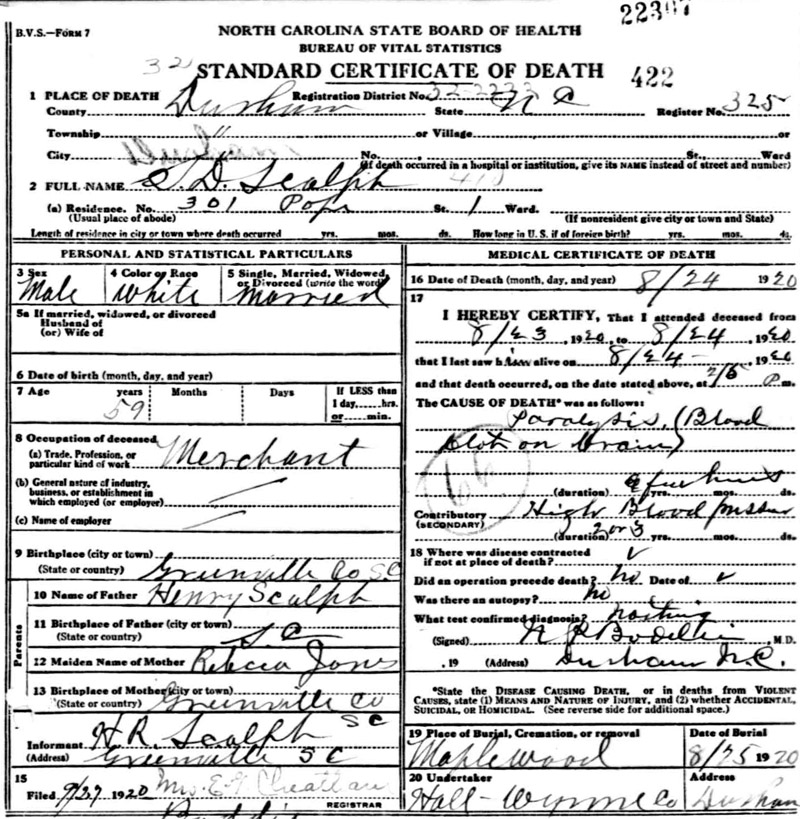 B.V.S.—FORM 7
22307
NORTH CAROLINA STATE BOARD OF HEALTH
BUREAU OF VITAL STATISTICS
32
STANDARD CERTIFICATE OF DEATH 422
1 PLACE OF DEATH Registration District No. 32-2273
County Durham State N C Register No. 325
Township " or Village or
City No. St., Ward
(If death occurred in a hospital or institution, give its NAME instead of street and number)
2 FULL NAME S. D. Scalph
(a) Residence. No. 301 Pope St. 1 Ward.
(Usual place of abode) (If nonresident give city or town and State)
Length of residence in city or town where death occurred yrs. mos. ds. How long in U. S. if of foreign birth? yrs. mos. ds.
PERSONAL AND STATISTICAL PARTICULARS
3 Sex 4 Color or Race 5 Single, Married, Widowed,
or Divorced (write the word)
Male White Married
5a If married, widowed, or divorced
Husband of
(or) Wife of
6 Date of birth (month, day, and year)
7 Age years Months Days If LESS than
1 day, hrs.
or min.
59
8 Occupation of deceased
(a) Trade, Profession, or
particular kind of work Merchant
(b) General nature of industry,
business, or establishment in
which employed (or employer)
(c) Name of employer
9 Birthplace (city or town)
(State or country) Greenville Co S C
Parents
10 Name of Father Henry Scalph
11 Birthplace of Father (city or town)
(State or country) S. C
12 Maiden Name of Mother Rebecca Jones
13 Birthplace of Mother (city or town)
(State or country) Greenville Co
S C
Informant H. R. Scalph
(Address) Greenville S C
15
Filed 9/27 1920 Mrs. E. Cheatham
REGISTRAR
MEDICAL CERTIFICATE OF DEATH
16 Date of Death (month, day, and year) 8/24 1920
17
I HEREBY CERTIFY, That I attended deceased from
8/23, 1920, to 8/24, 1920
that I last saw him alive on 8/24 - 1920
and that death occurred, on the date stated above, at P m.
The CAUSE OF DEATH* was as follows:
Paralysis, (Blood
Clot on brain)
66
(duration) yrs. mos. ds.
Contributory High Blood pressure
(SECONDARY)
(duration) 2 or 3 yrs. mos. ds.
18 Where was disease contracted
if not at place of death? ✓
Did an operation precede death? No Date of ✓
Was there an autopsy? No
What test confirmed diagnosis? nothing
(Signed) M. D.
, 19 (Address) Durham N. C.
*State the DISEASE CAUSING DEATH, or in deaths from VIOLENT
CAUSES, state (1) MEANS AND NATURE OF INJURY, and (2) whether ACCIDENTAL,
SUICIDAL, or HOMICIDAL. (See reverse side for additional space.)
19 Place of Burial, Cremation, or removal Date of Burial
Maplewood 8/25 1920
20 Undertaker Address
Hall-Wynne Co Durham